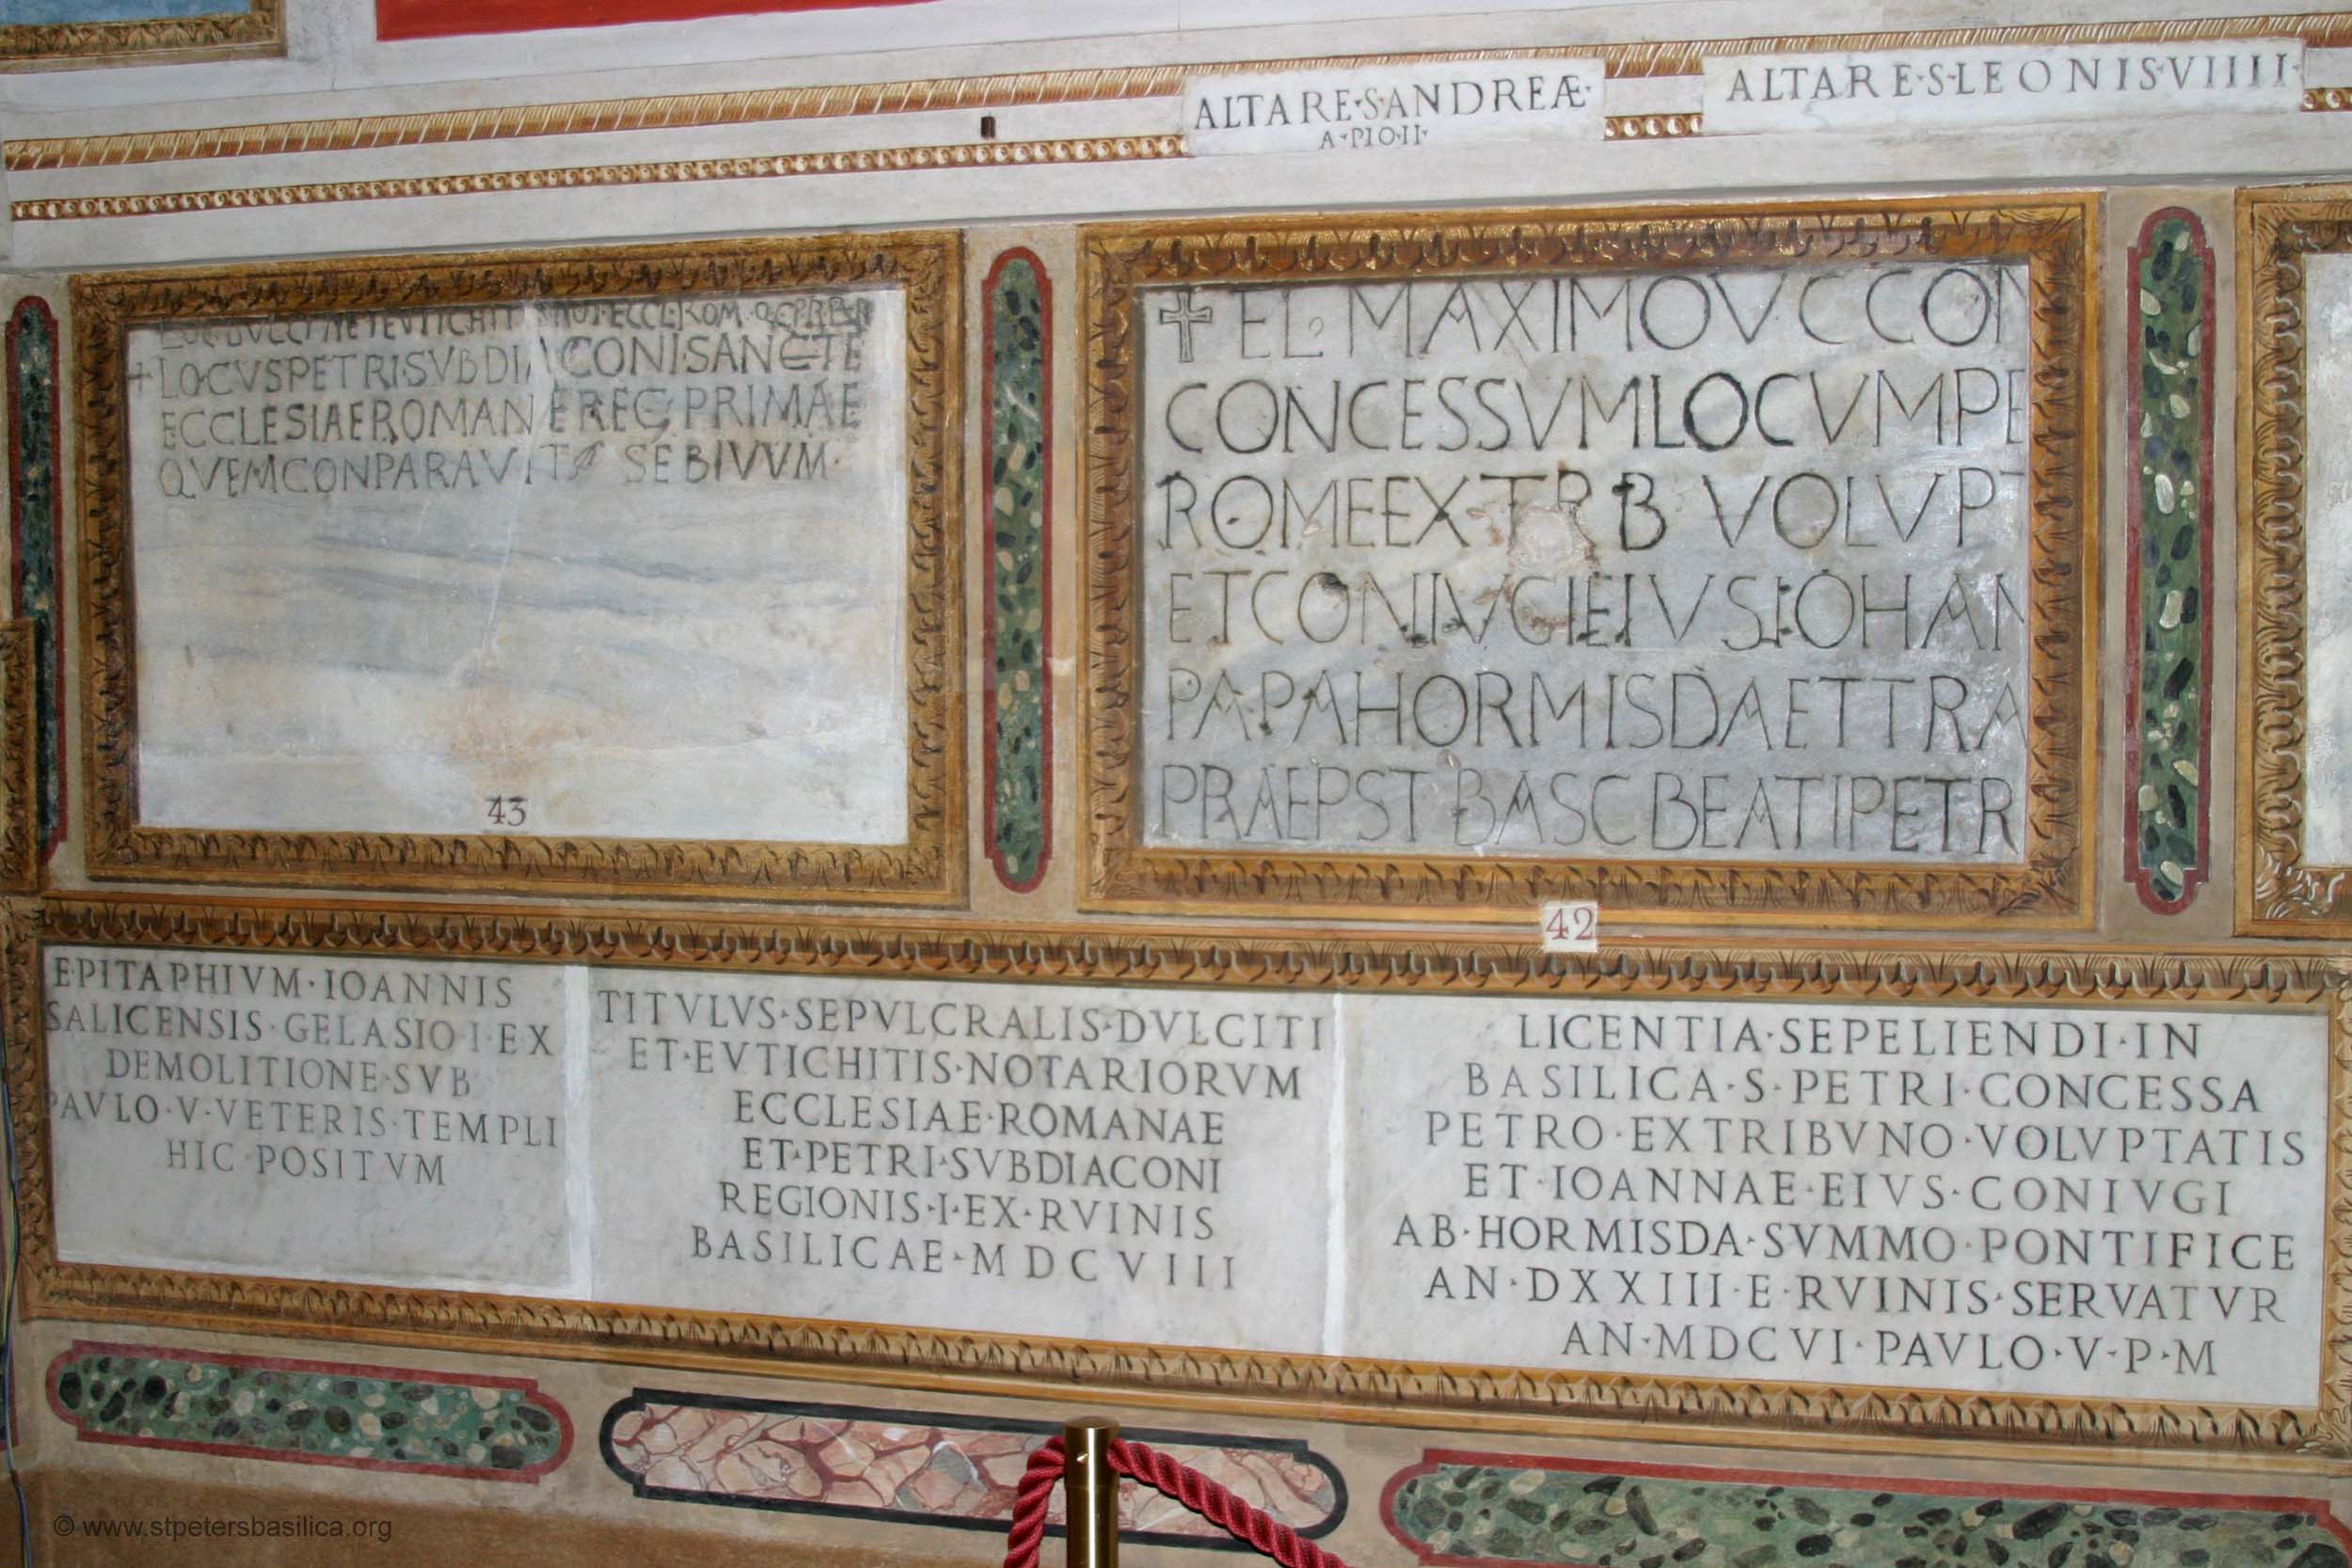 ALTARE·S·ANDREÆ·
A·PIO·II·
ALTARE·S·LEONIS·VIIII·
ECCL·ROM
+LOCVSPETRI·SVBDIACONI·SANCTE
ECCLESIAEROMANEREG PRIMAE
QVEMCONPARAVIT SEBIVVM·
43
✝ FL MAXIMOVCCON
CONCESSVMLOCVMPE
ROMEEXTRB VOLVPT
ETCONIVGIEIVSIOHAN
PAPAHORMISDAETTRA
PRAEPSTBASCBEATIPETR
42
EPITAPHIVM·IOANNIS
SALICENSIS·GELASIO·I·EX
DEMOLITIONE·SVB
PAVLO·V·VETERIS·TEMPLI
HIC·POSITVM
TITVLVS·SEPVLCRALIS·DVLCITI
ET·EVTICHITIS·NOTARIORVM
ECCLESIAE·ROMANAE
ET·PETRI·SVBDIACONI
REGIONIS·I·EX·RVINIS
BASILICAE·MDCVIII
LICENTIA·SEPELIENDI·IN
BASILICA·S·PETRI·CONCESSA
PETRO·EXTRIBVNO·VOLVPTATIS
ET·IOANNAE·EIVS·CONIVGI
AB·HORMISDA·SVMMO·PONTIFICE
AN·DXXIII·E·RVINIS·SERVATVR
AN·MDCVI·PAVLO·V·P·M
© www.stpetersbasilica.org